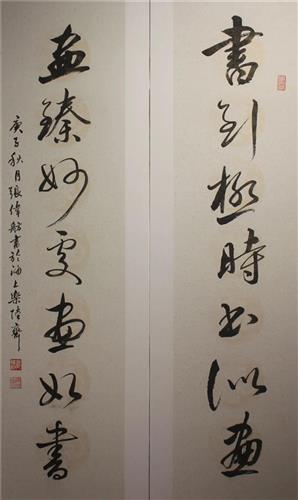 書到極時書似畫
畫臻妙處畫如書
庚子秋月張偉舫書於海上樂陸齋